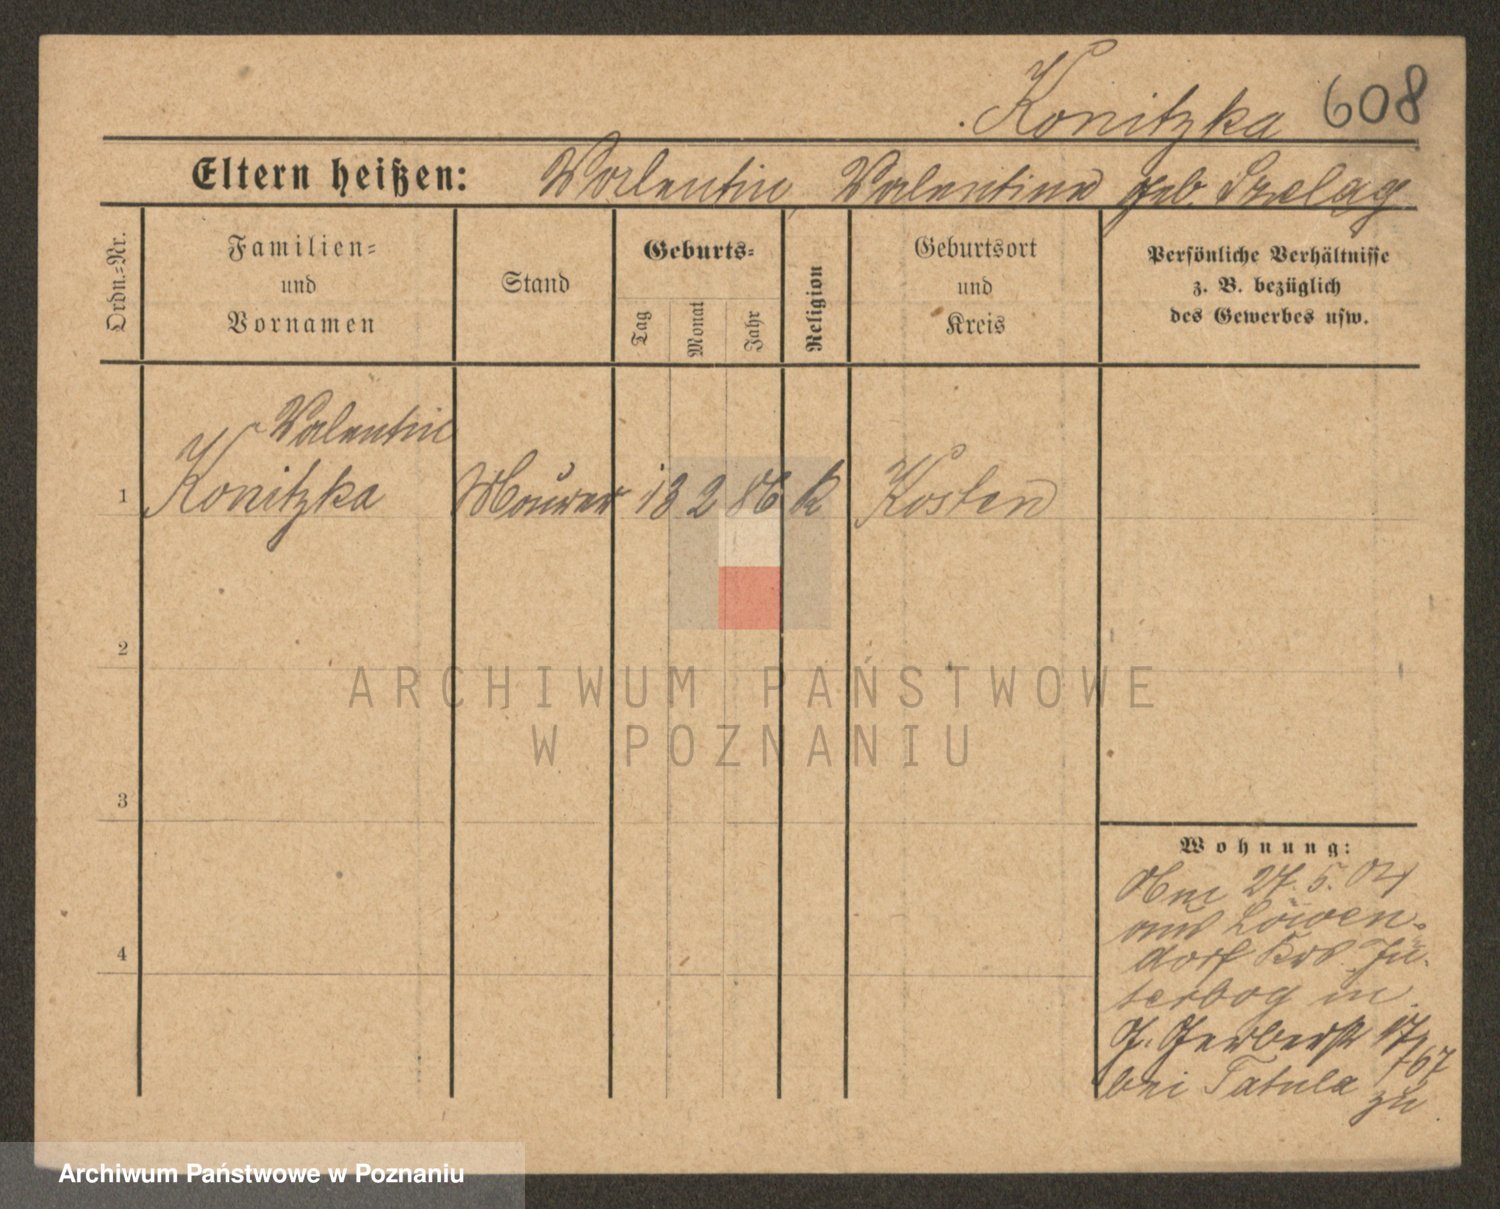 Konitzka 608
Eltern heißen: Valentin, Valentine geb. Szelag
Ordn.-Nr.
Familien-
und
Vornamen
Stand
Geburts-
Tag
Monat
Jahr
Religion
Geburtsort
und
Kreis
Persönliche Verhältnisse
z. B. bezüglich
des Gewerbes usw.
Valentin
1 Konitzka Maurer 13 2 86 k Kosten
2
3
4
Wohnung:
Am 27. 5. 04
aus Löwen-
dorf Krs. Jü-
terbog in
Gerberstr
bei Tatula zu
ARCHIWUM PAŃSTWOWE
W POZNANIU
Archiwum Państwowe w Poznaniu